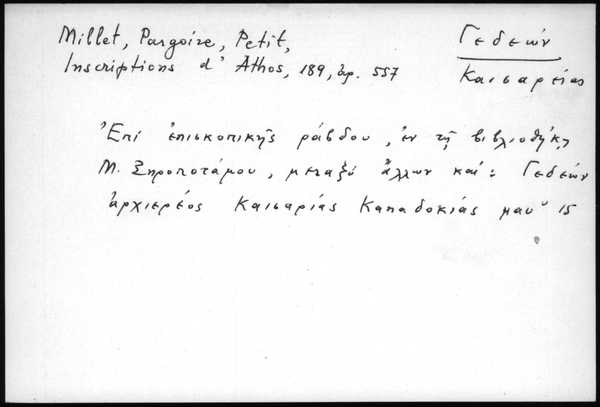 Millet, Pargoire, Petit,
Inscriptions d' Athos, 189, ἀρ. 557
Γεδεών
Καισαρείας
Ἐπί ἐπισκοπικῆς ράβδου, ἐν τῇ βιβλιοθήκῃ
Μ. Ξηροποτάμου, μεταξύ ἄλλων καί: Γεδεών
ἀρχιερέος Καισαρίας Καπαδοκιάς μαυ 15